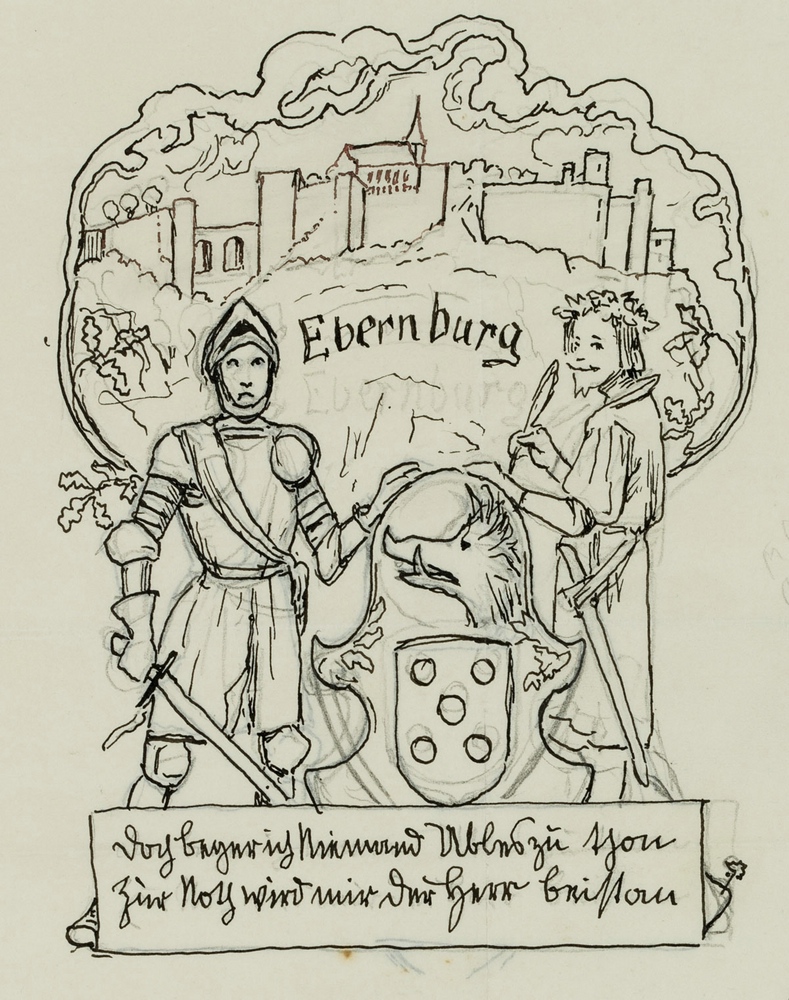 Ebernburg
Ebernburg
Doch beger ich Niemand Übles zu thon
Zur Noth wird mir der Herr beistan